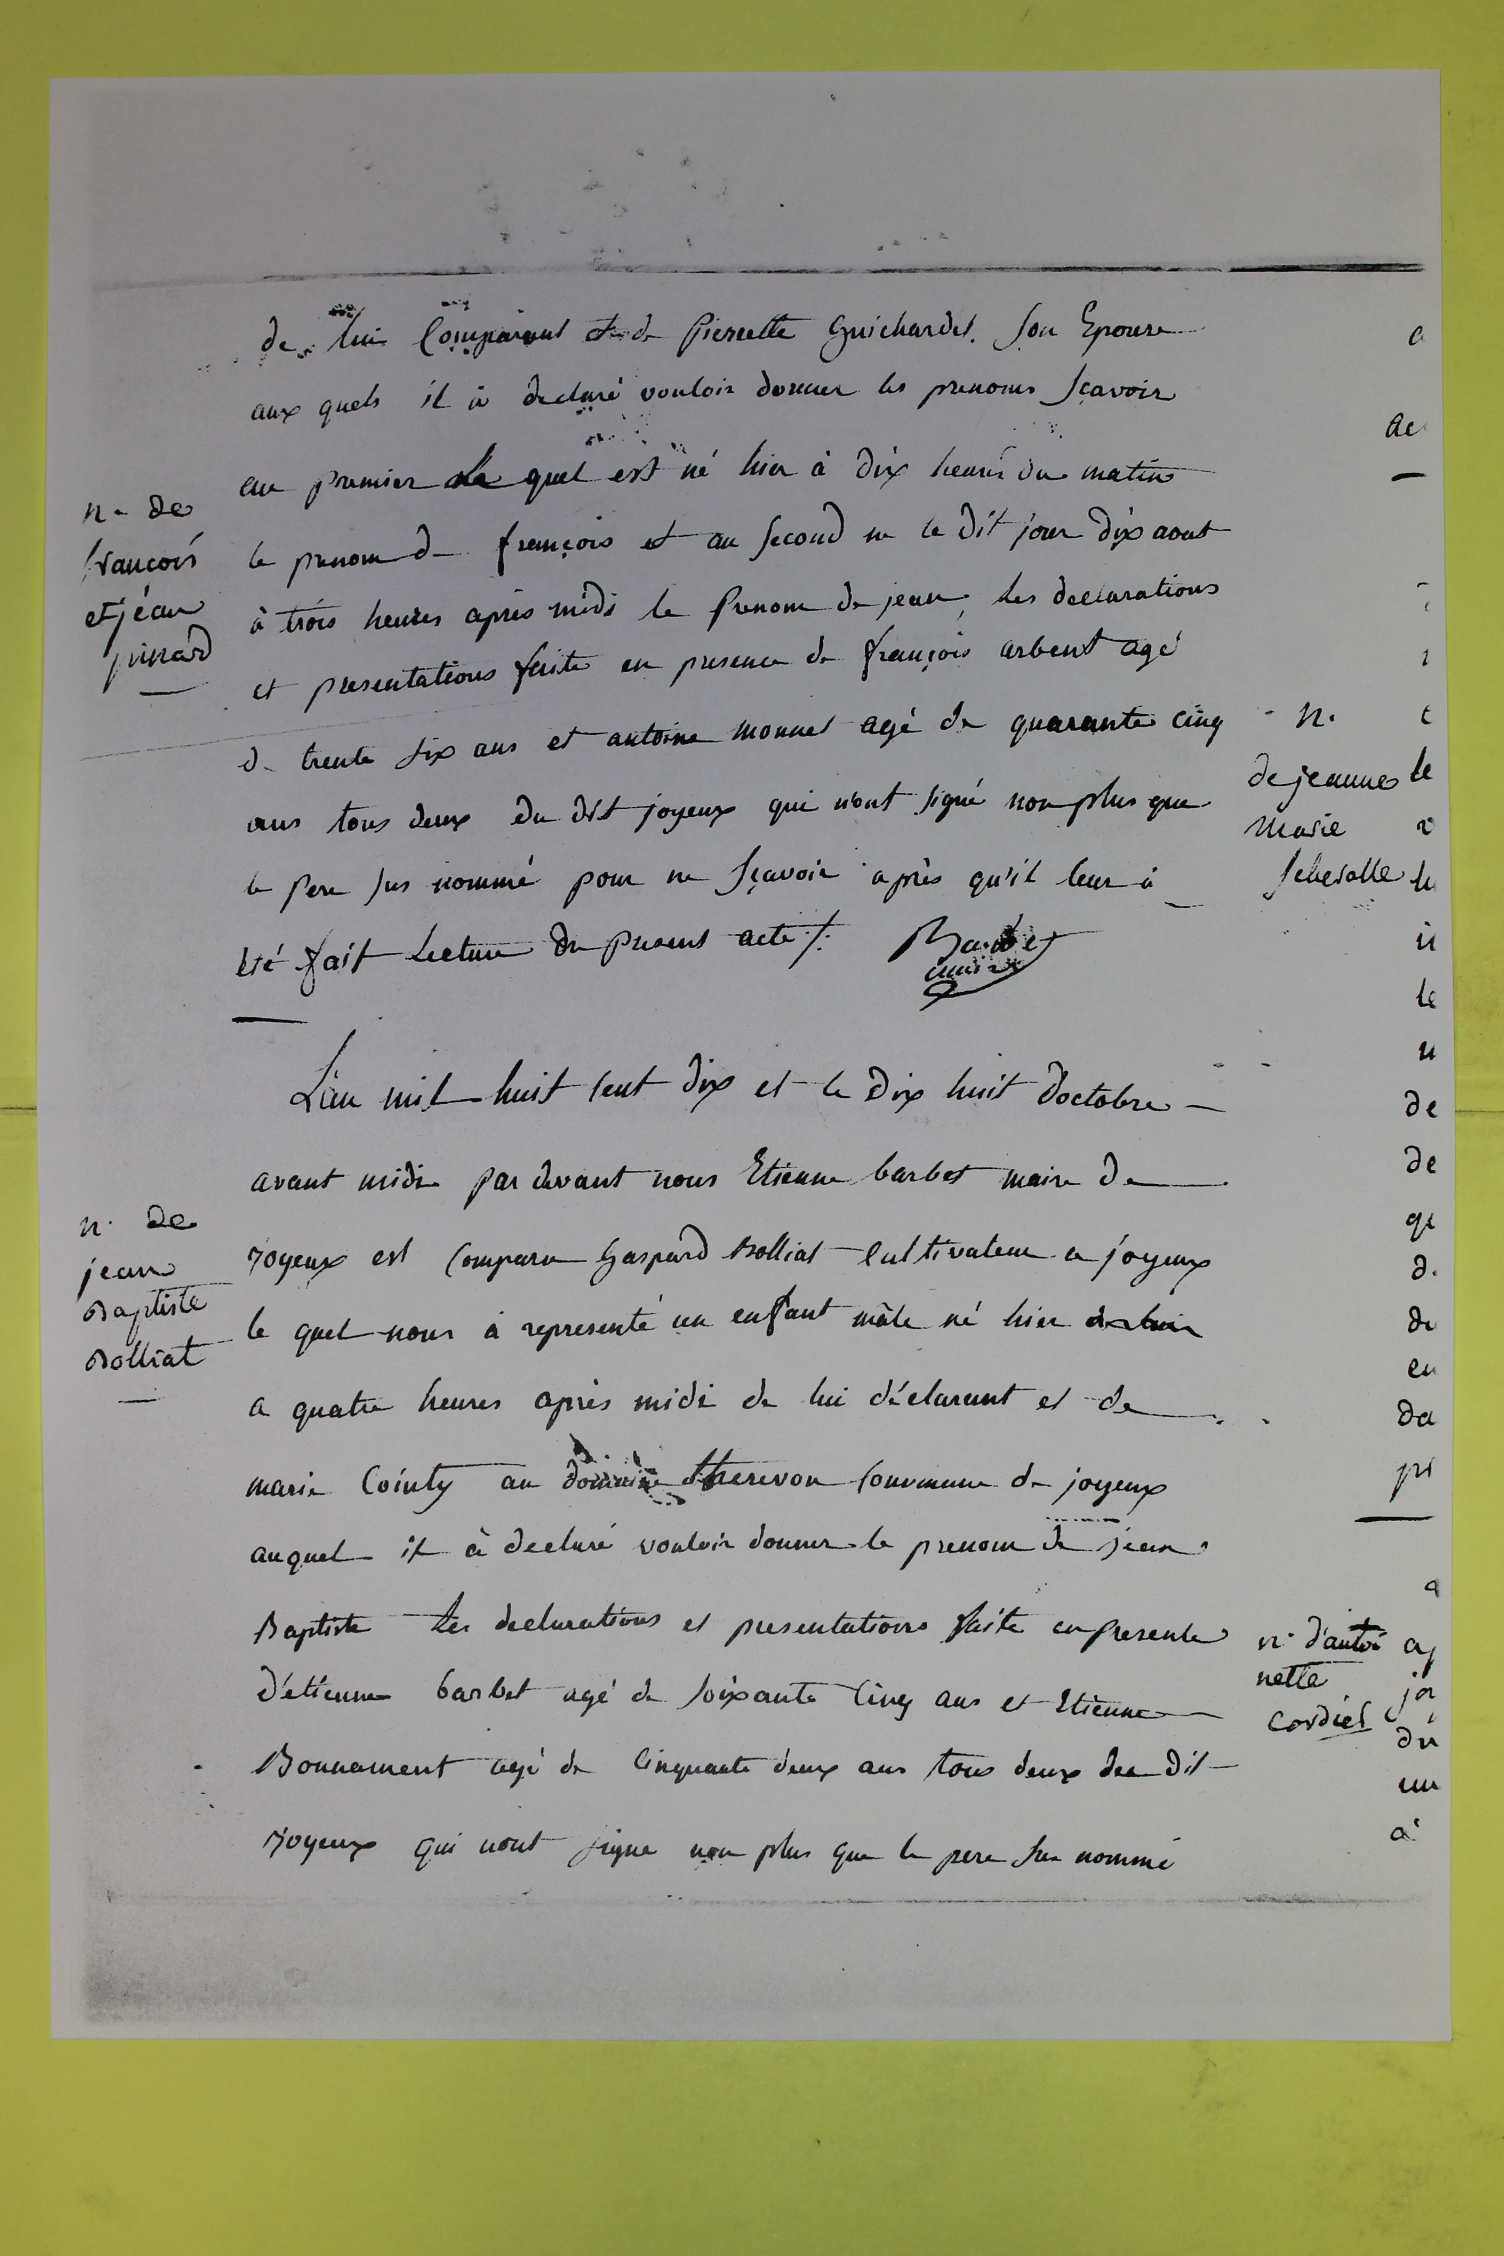 de lui Comparant et de pierrette Guichardet. Son Epouse
aux quels il à declaré vouloir donner les prenoms sçavoir
au premier le quel est né hier à dix heures du matin
n. de
françois
et jéan
pinrard
le prenom de françois et au second ne le dit jour dix aout
à trois heures après midi le Prenom de jean, les declarations
et presentations faite en presence de françois arbent agé
de trente six ans et antoine monnet agé de quarante cinq
ans tous deux du dit joyeux qui n'ont signé non plus que
le pere sus nommé pour ne sçavoir après qu'il leur à
été fait Lecture du present acte /.
Barbet
maire
L'an mil huit Cent dix et le dix huit d'octobre
avant midi par devant nous Etienne barbet maire de
n. de
jean
Baptiste
Bolliat
joyeux est Comparu Gaspard Bolliat Cultivateur a joyeux
le quel nous à representé un enfant mâle né hier
a quatre heures après midi de lui déclarant et de
marie Cointy au domaine therevon Commune de joyeux
auquel il à declaré vouloir donner le prenom de jean
Baptiste Les declarations et presentations faite en presente
d'étienne barbet agé de soixante Cinq ans et Etienne
Bonnament agé de Cinquante deux ans tous deux du dit
joyeux qui nont signe non plus que le pere sus nommé
n.
de jeanne
Marie
n. d'antoi
nette
Cordier